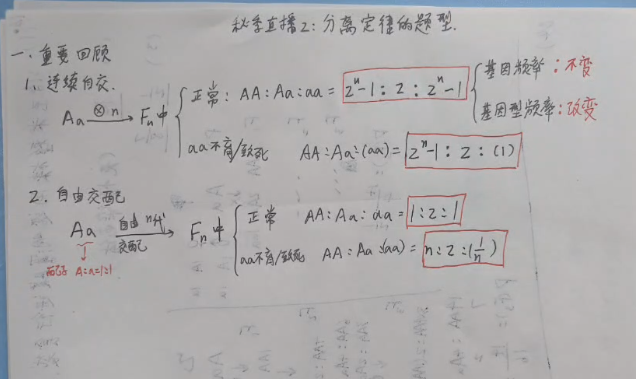 秋季直播2：分离定律的题型.
一、重要回顾
1、连续自交.
Aa ⊗n→ Fn中
正常：AA：Aa：aa = 2ⁿ-1：2：2ⁿ-1
基因频率：不变
基因型频率：改变
aa不育/致死 AA：Aa：(aa) = 2ⁿ-1：2：(1)
2、自由交配
Aa 自由交配 n代→ Fn中
配子 A：a=1：1
正常 AA：Aa：aa = 1：2：1
aa不育/致死 AA：Aa：(aa) = n：2：(1/n)